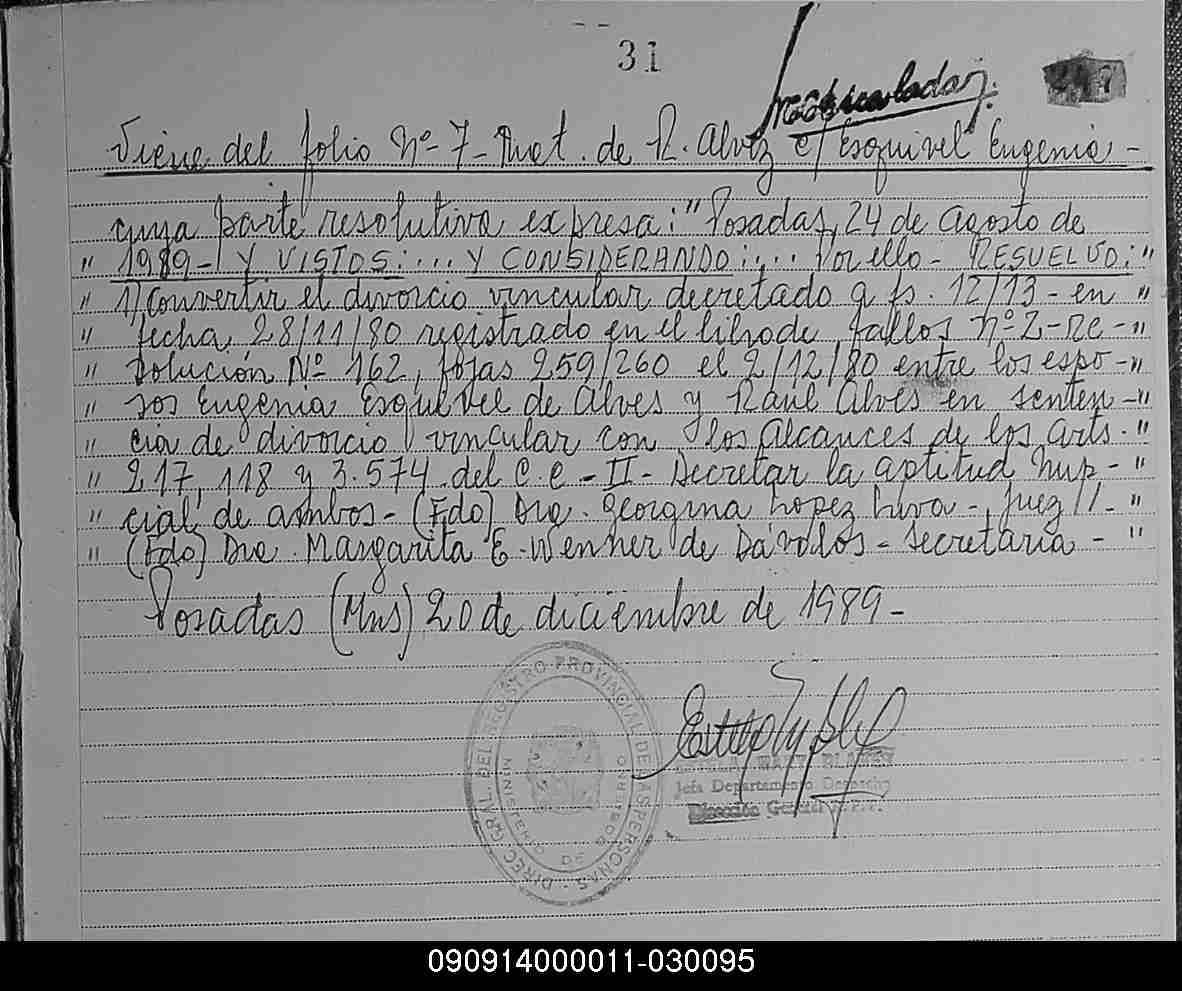 31
Viene del folio Nº 7 - Mat. de R. Alvez c/ Esquivel Eugenia -
cuya parte resolutiva expresa: "Posadas, 24 de agosto de
" 1989 - Y VISTOS: .... Y CONSIDERANDO: .... Por ello - RESUELVO: "
" 1) Convertir el divorcio vincular decretado a fs. 12/13 - en "
" fecha 28/11/80 registrado en el libro de fallos nº 2 - Re - "
" solución Nº 162, fojas 259/260 el 2/12/80 entre los espo - "
" sos Eugenia Esquivel de Alves y Raúl Alves en senten - "
" cia de divorcio vincular con los alcances de los arts. "
" 217, 118 y 3.574 del C.C - II - Decretar la aptitud nup - "
" cial de ambos - (Fdo) Dra. Georgina Lopez Liva -, Juez //. "
" (Fdo) Dra. Margarita E. Wenner de Dávalos - secretaria - "
Posadas (Mns) 20 de diciembre de 1989 -
DIREC. GRAL. DEL REGISTRO PROVINCIAL DE LAS PERSONAS
MINISTERIO DE GOBIERNO
Jefa Departamento Despacho
Dirección General R.P.P.
090914000011-030095